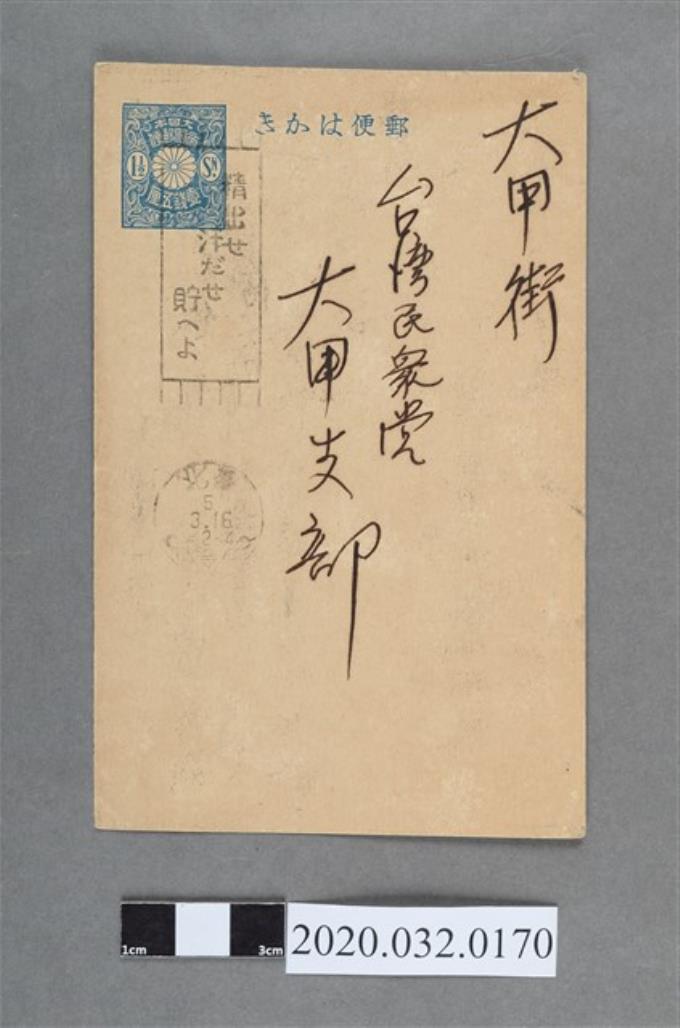 郵便はかき
大日本
帝國郵便
1½ Sn.
壹銭五厘
大甲街
台湾民衆党
大甲支部
精出せ
汗だせ
貯へよ
北
5
3.16
1cm 3cm
2020.032.0170